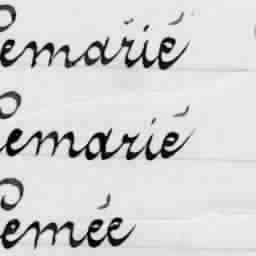 Lemarié
Lemarié
Lemée